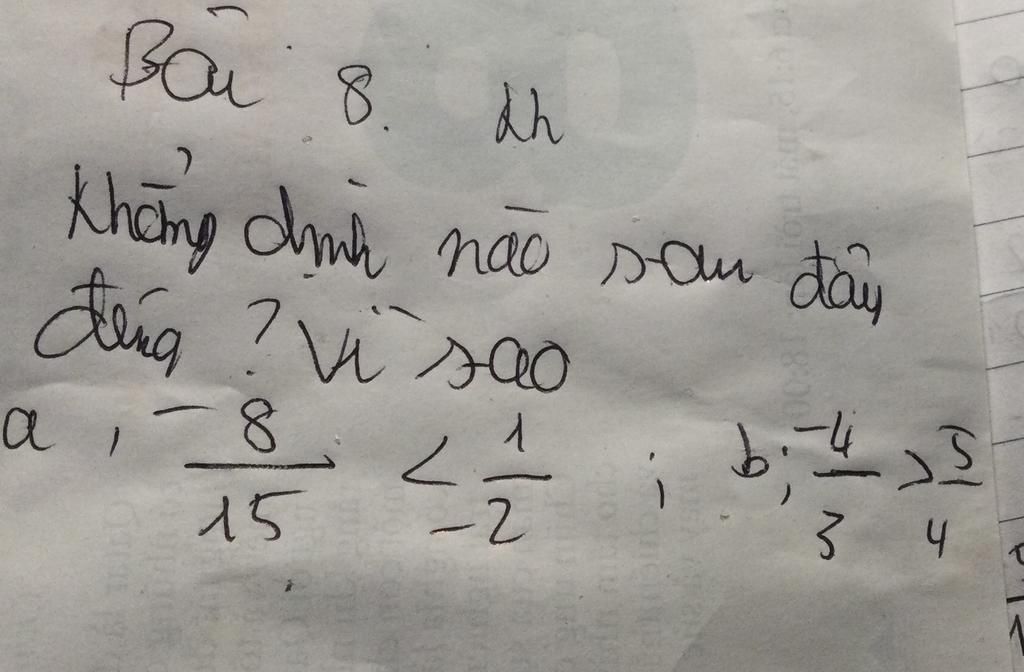 Bài 8.
Khẳng định nào sau đây
đúng ? Vì sao
a, -8/15 < 1/-2 ; b; -4/3 > 5/4